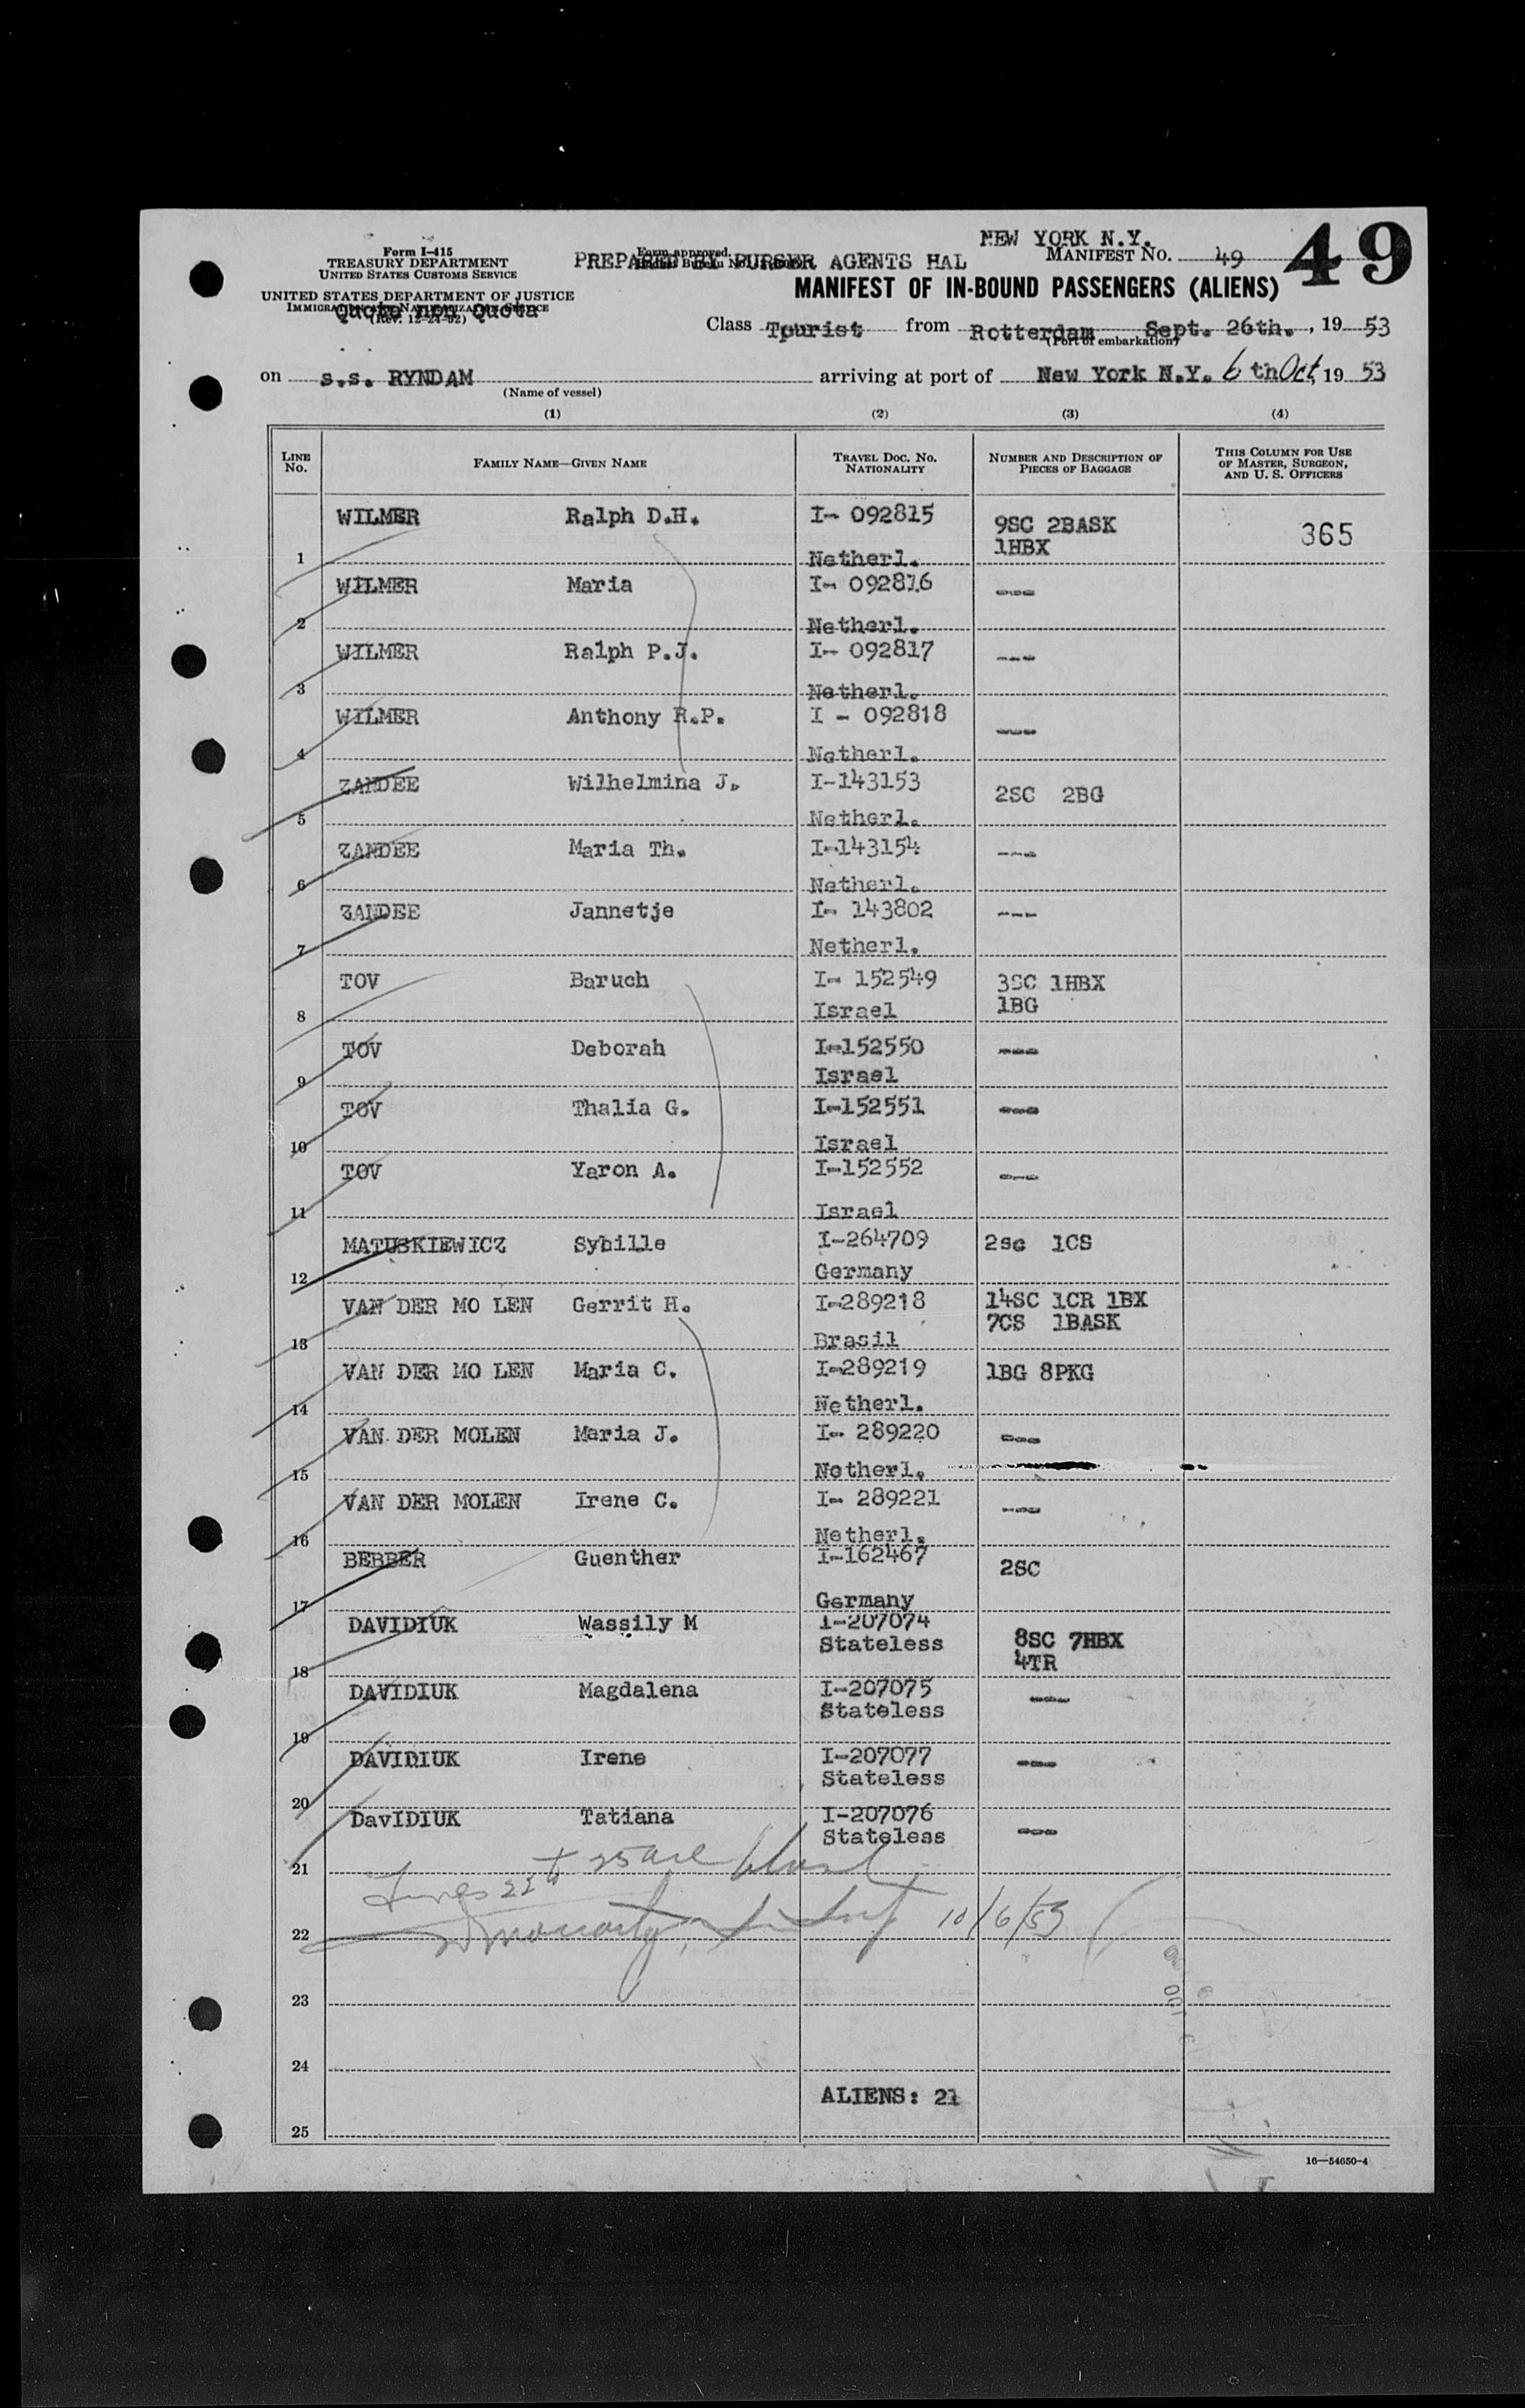 NEW YORK N.Y.
49
Form I-415
TREASURY DEPARTMENT
UNITED STATES CUSTOMS SERVICE
Form approved.
PREPARED BY PURSER AGENTS HAL
MANIFEST NO. 49
UNITED STATES DEPARTMENT OF JUSTICE
IMMIGRATION AND NATURALIZATION SERVICE
(Rev. 12-24-52)
Quota non Quota
MANIFEST OF IN-BOUND PASSENGERS (ALIENS)
Class Tpurist from Rotterdam Sept. 26th. , 19 53
(Port of embarkation)
on s.s. RYNDAM arriving at port of New York N.Y. 6 th Oct, 19 53
(Name of vessel)
(1) (2) (3) (4)
LINE NO. FAMILY NAME—GIVEN NAME TRAVEL DOC. NO. NATIONALITY NUMBER AND DESCRIPTION OF PIECES OF BAGGAGE THIS COLUMN FOR USE OF MASTER, SURGEON, AND U. S. OFFICERS
WILMER Ralph D.H. I- 092815 9SC 2BASK 365
1 Netherl. 1HBX
WILMER Maria I- 092816 ---
2 Netherl.
WILMER Ralph P.J. I- 092817 ---
3 Netherl.
WILMER Anthony R.P. I - 092818 ---
4 Netherl.
ZANDEE Wilhelmina J. I-143153 2SC 2BG
5 Netherl.
ZANDEE Maria Th. I-143154 ---
6 Netherl.
ZANDEE Jannetje I- 143802 ---
7 Netherl.
TOV Baruch I- 152549 3SC 1HBX
8 Israel 1BG
TOV Deborah I-152550 ---
9 Israel
TOV Thalia G. I-152551 ---
10 Israel
TOV Yaron A. I-152552 ---
11 Israel
MATUSKIEWICZ Sybille I-264709 2sc 1CS
12 Germany
VAN DER MO LEN Gerrit H. I-289218 14SC 1CR 1BX
13 Brasil 7CS 1BASK
VAN DER MO LEN Maria C. I-289219 1BG 8PKG
14 Netherl.
VAN DER MOLEN Maria J. I- 289220 ---
15 Netherl.
VAN DER MOLEN Irene C. I- 289221 ---
16 Netherl.
BEBBER Guenther I-162467 2SC
17 Germany
DAVIDIUK Wassily M I-207074
18 Stateless 8SC 7HBX
4TR
DAVIDIUK Magdalena I-207075 ---
19 Stateless
DAVIDIUK Irene I-207077 ---
20 Stateless
DavIDIUK Tatiana I-207076
21 Stateless ---
Lines 22 to 25 are blank
22 10/6/53
23
24
ALIENS: 21
25
16—54650-4